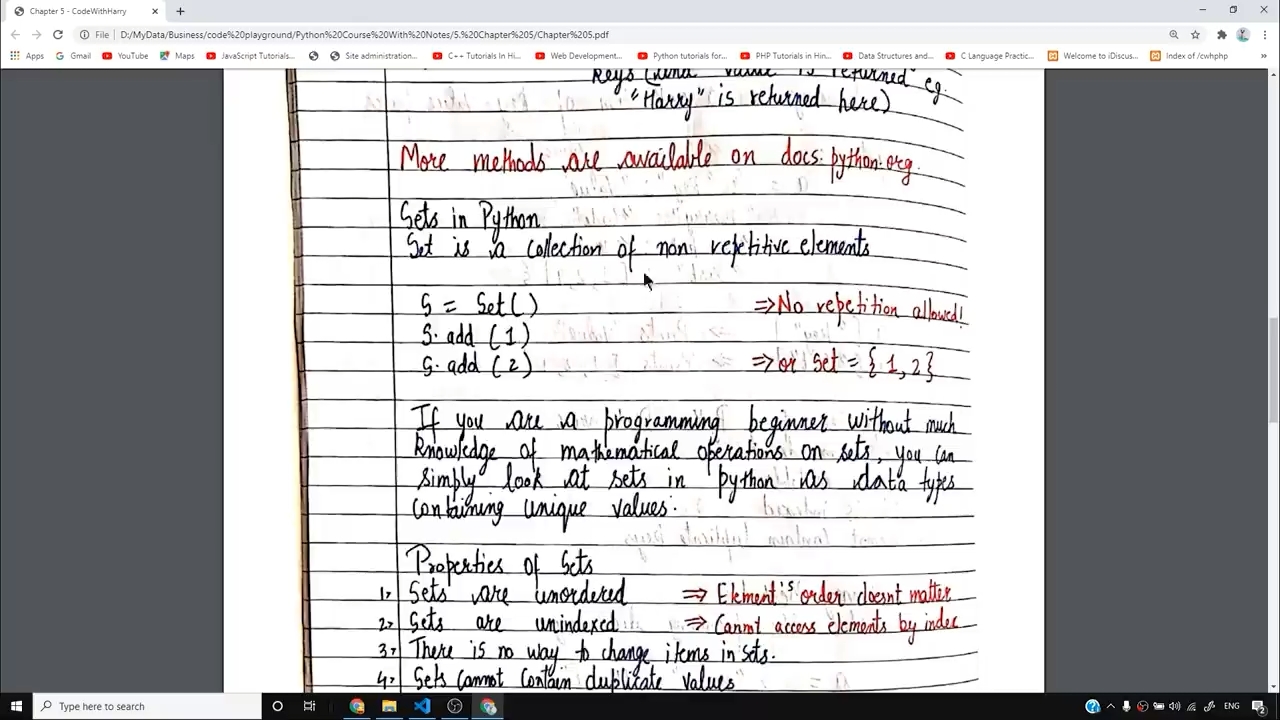 Chapter 5 - CodeWithHarry
File | D:/MyData/Business/code%20playground/Python%20Course%20With%20Notes/5.%20Chapter%205/Chapter%205.pdf
Apps Gmail YouTube Maps JavaScript Tutorials... Site administration... C++ Tutorials In Hi... Web Development... Python tutorials for... PHP Tutorials in Hi... Data Structures and... C Language Practic... Welcome to iDiscus... Index of /cwhphp
value is returned eg.
"Harry" is returned here)
More methods are available on docs.python.org.
Sets in Python
Set is a collection of non repetitive elements
S = Set() ⇒ No repetition allowed!
S.add (1)
S.add (2) ⇒ or Set = {1, 2}
If you are a programming beginner without much
knowledge of mathematical operations on sets, you can
simply look at sets in python as data types
containing unique values.
Properties of Sets
1. Sets are unordered ⇒ Element's order doesnt matter
2. Sets are unindexed ⇒ Cannot access elements by index
3. There is no way to change items in sets.
4. Sets cannot contain duplicate values
Type here to search
ENG